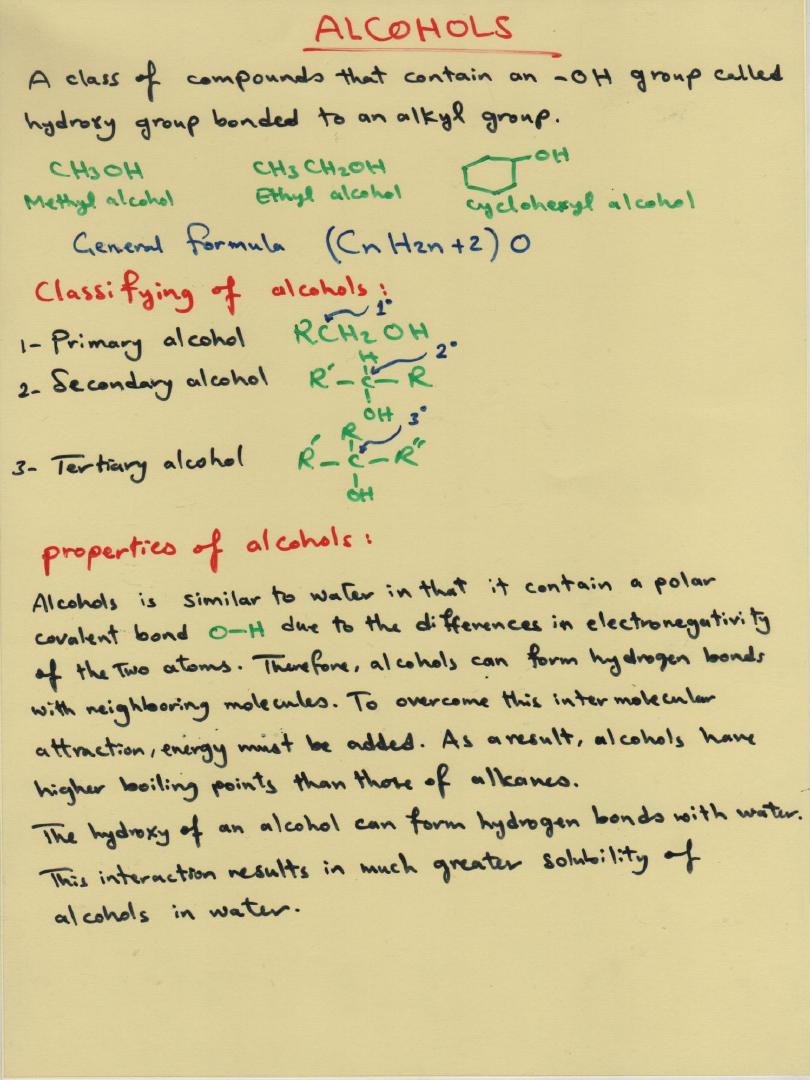 ALCOHOLS
A class of compounds that contain an -OH group called
hydroxy group bonded to an alkyl group.
CH3OH CH3CH2OH OH
Methyl alcohol Ethyl alcohol cyclohexyl alcohol
General formula (CnH2n+2)O
Classifying of alcohols:
1°
1- Primary alcohol RCH2OH
H 2°
2- Secondary alcohol R'-C-R
OH
R 3°
3- Tertiary alcohol R'-C-R"
OH
properties of alcohols:
Alcohols is similar to water in that it contain a polar
covalent bond O-H due to the differences in electronegativity
of the two atoms. Therefore, alcohols can form hydrogen bonds
with neighboring molecules. To overcome this intermolecular
attraction, energy must be added. As a result, alcohols have
higher boiling points than those of alkanes.
The hydroxy of an alcohol can form hydrogen bonds with water.
This interaction results in much greater solubility of
alcohols in water.